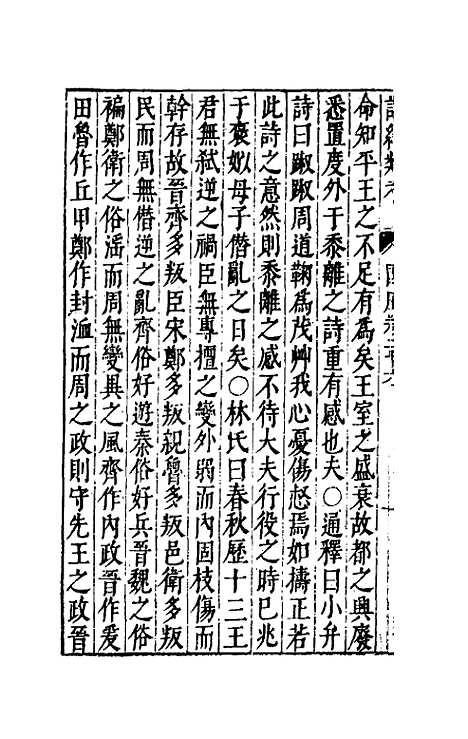 詩經類考
國風
命知平王之不足有為矣王室之盛衰故都之興廢
悉置度外于黍離之詩重有感也夫○通釋曰小弁
詩曰踧踧周道鞠為茂艸我心憂傷惄焉如擣正若
此詩之意然則黍離之感不待大夫行役之時已兆
于褒姒母子僭亂之日矣○林氏曰春秋歷十三王
君無弒逆之禍臣無專擅之變外弱而內固枝傷而
幹存故晉齊多叛臣宋鄭多叛親魯多叛邑衛多叛
民而周無僭逆之亂齊俗好遊秦俗好兵晉魏之俗
褊鄭衛之俗滛而周無變異之風齊作內政晉作爰
田魯作丘甲鄭作封洫而周之政則守先王之政晉